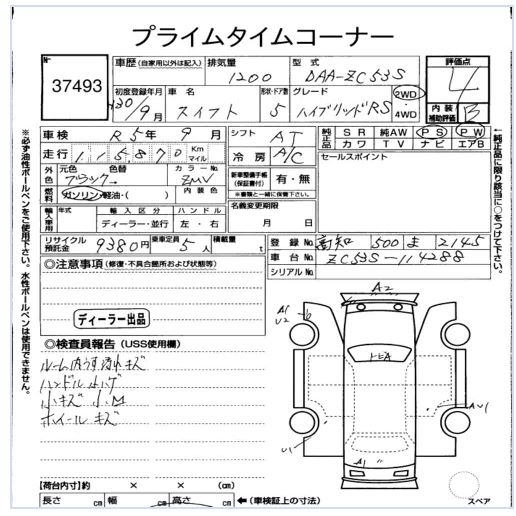 プライムタイムコーナー
No.
37493
車歴 (自家用以外は記入)
排気量
1200
型式
DAA-ZC53S
評価点
4
初度登録年月
H30/9月
車名
スイフト
形状・ドア数
5
グレード
ハイブリッドRS
2WD
・
4WD
内装
補助評価
B
車検
R5年9月
シフト
AT
純正品
SR
純AW
PS
PW
カワ
TV
ナビ
エアB
走行
115,870
Km
マイル
冷房
A/C
セールスポイント
外色
元色
ブラック
色替
カラーNo.
ZMV
燃料
ガソリン・軽油・( )
内装色
新車整備手帳
(保証書付)
有・無
※書類と一緒に保管下さい。
輸入車用
年式
輸入区分
ディーラー・並行
ハンドル
左・右
名義変更期限
月 日
リサイクル
預託金
9380円
乗車定員
5人
積載量
t
登録No.
高知 500 ま 2145
車台No.
ZC53S-114288
シリアルNo.
◎注意事項 (修復・不具合箇所および状態等)
ディーラー出品
◎検査員報告 (USS使用欄)
ルーム内うす汚れキズ
ハンドル小ハゲ
小キズ 小凹
ホイールキズ
A2
A1
U2
AU1
U1
A1
スペア
【荷台内寸】約 × × (cm)
長さ cm 幅 cm 高さ cm ←(車検証上の寸法)
※必ず油性ボールペンをご使用下さい。水性ボールペンは使用できません。
←純正品に限り該当に○をつけて下さい。